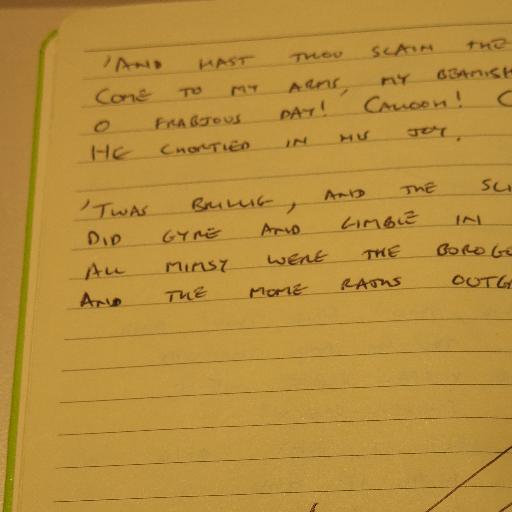 'AND HAST THOU SLAIN THE
COME TO MY ARMS, MY BEAMISH
O FRABJOUS DAY! CALLOOH! C
HE CHORTLED IN HIS JOY.
'TWAS BRILLIG, AND THE SLI
DID GYRE AND GIMBLE IN
ALL MIMSY WERE THE BOROGO
AND THE MOME RATHS OUTG